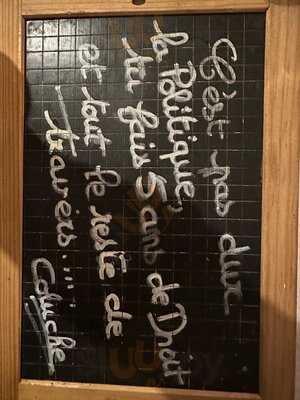 C'est pas dur
la Politique,
tu fais 5 ans de Droit
et tout le reste de
travers...
Coluche